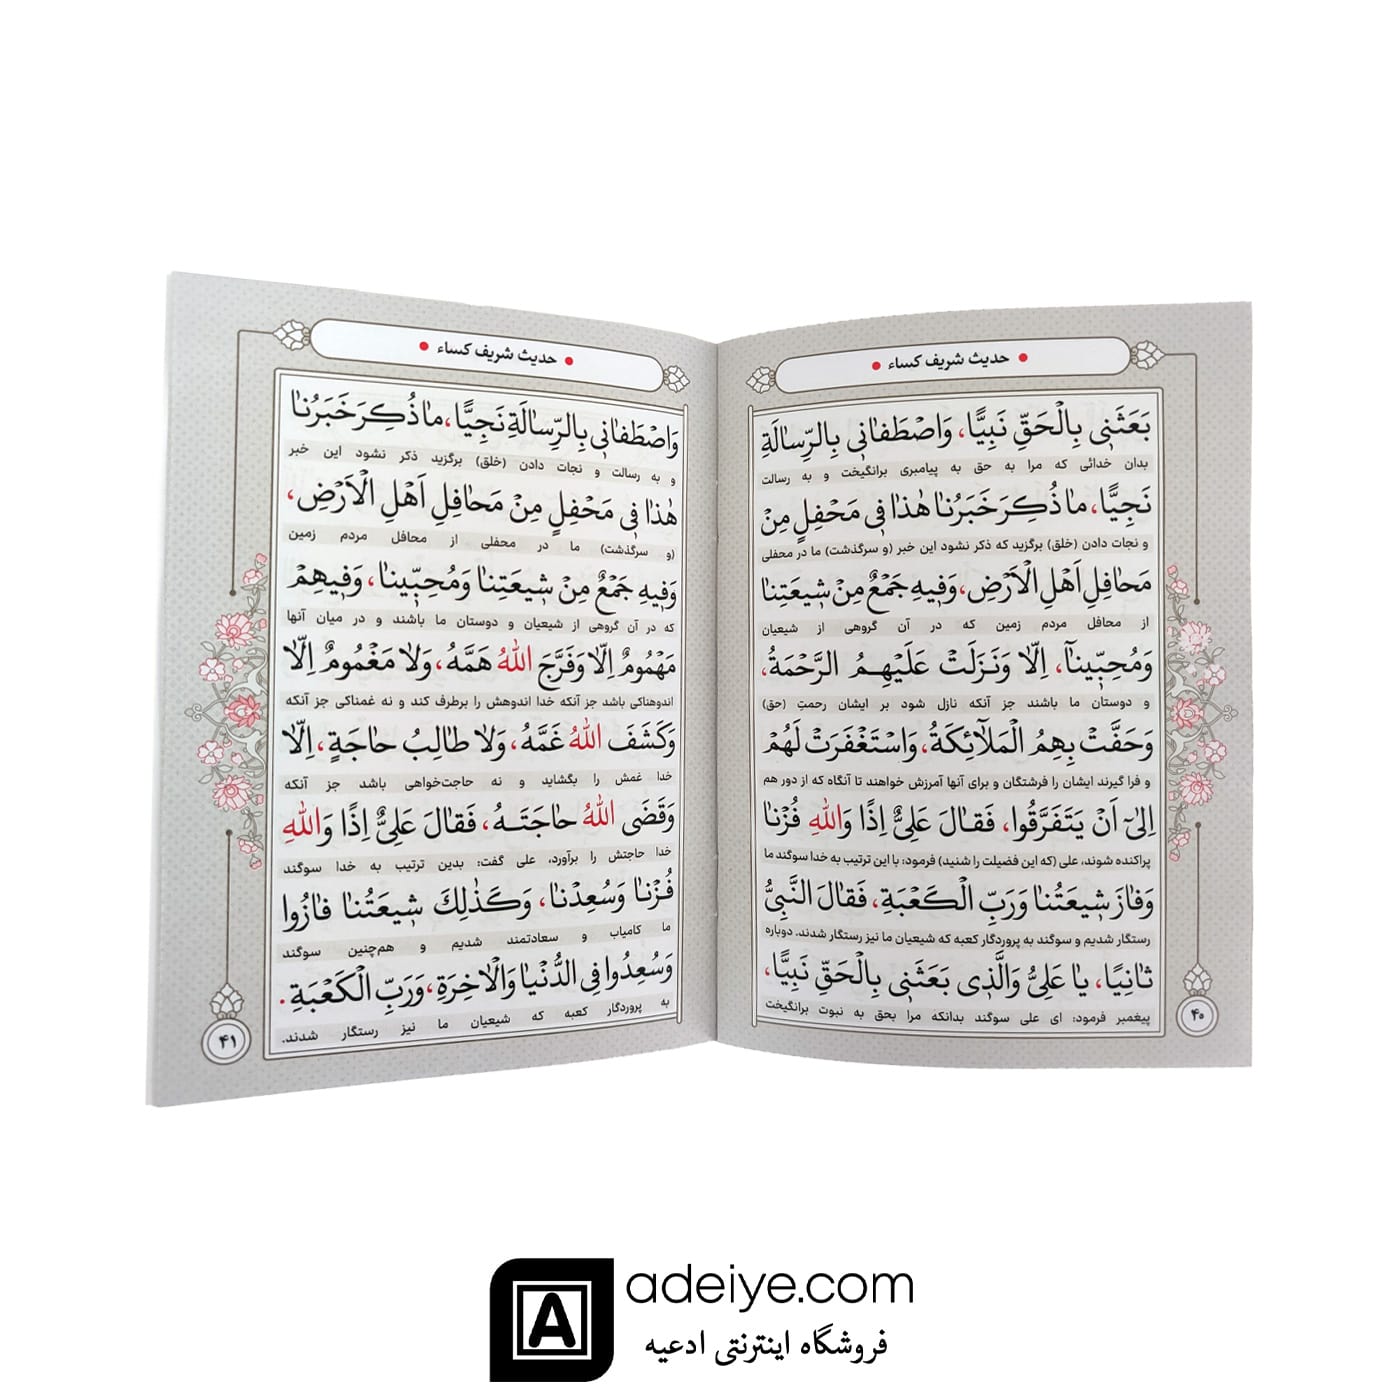 حدیث شریف کساء
بَعَثَنِي بِالْحَقِّ نَبِيًّا، وَاصْطَفَانِي بِالرِّسَالَةِ
بدان خدائی که مرا به حق به پیامبری برانگیخت و به رسالت
نَجِيًّا، مَا ذُكِرَ خَبَرُنَا هٰذَا فِي مَحْفِلٍ مِنْ
و نجات دادن (خلق) برگزید که ذکر نشود این خبر (و سرگذشت) ما در محفلی
مَحَافِلِ أَهْلِ الْأَرْضِ، وَفِيهِ جَمْعٌ مِنْ شِيعَتِنَا
از محافل مردم زمین که در آن گروهی از شیعیان
وَمُحِبِّينَا، إِلَّا وَنَزَلَتْ عَلَيْهِمُ الرَّحْمَةُ،
و دوستان ما باشند جز آنکه نازل شود بر ایشان رحمتِ (حق)
وَحَفَّتْ بِهِمُ الْمَلَائِكَةُ، وَاسْتَغْفَرَتْ لَهُمْ
و فرا گیرند ایشان را فرشتگان و برای آنها آمرزش خواهند تا آنگاه که از دور هم
إِلَىٰ أَنْ يَتَفَرَّقُوا، فَقَالَ عَلِيٌّ إِذًا وَاللهِ فُزْنَا
پراکنده شوند، علی (که این فضیلت را شنید) فرمود: با این ترتیب به خدا سوگند ما
وَفَازَ شِيعَتُنَا وَرَبِّ الْكَعْبَةِ، فَقَالَ النَّبِيُّ
رستگار شدیم و سوگند به پروردگار کعبه که شیعیان ما نیز رستگار شدند. دوباره
ثَانِيًا، يَا عَلِيُّ وَالَّذِي بَعَثَنِي بِالْحَقِّ نَبِيًّا،
پیغمبر فرمود: ای علی سوگند بدانکه مرا بحق به نبوت برانگیخت
۴۰
حدیث شریف کساء
وَاصْطَفَانِي بِالرِّسَالَةِ نَجِيًّا، مَا ذُكِرَ خَبَرُنَا
و به رسالت و نجات دادن (خلق) برگزید ذکر نشود این خبر
هٰذَا فِي مَحْفِلٍ مِنْ مَحَافِلِ أَهْلِ الْأَرْضِ،
(و سرگذشت) ما در محفلی از محافل مردم زمین
وَفِيهِ جَمْعٌ مِنْ شِيعَتِنَا وَمُحِبِّينَا، وَفِيهِمْ
که در آن گروهی از شیعیان و دوستان ما باشند و در میان آنها
مَهْمُومٌ إِلَّا وَفَرَّجَ اللهُ هَمَّهُ، وَلَا مَغْمُومٌ إِلَّا
اندوهناکی باشد جز آنکه خدا اندوهش را برطرف کند و نه غمناکی جز آنکه
وَكَشَفَ اللهُ غَمَّهُ، وَلَا طَالِبُ حَاجَةٍ، إِلَّا
خدا غمش را بگشاید و نه حاجت‌خواهی باشد جز آنکه
وَقَضَى اللهُ حَاجَتَهُ، فَقَالَ عَلِيٌّ إِذًا وَاللهِ
خدا حاجتش را برآورد، علی گفت: بدین ترتیب به خدا سوگند
فُزْنَا وَسُعِدْنَا، وَكَذٰلِكَ شِيعَتُنَا فَازُوا
ما کامیاب و سعادتمند شدیم و هم‌چنین سوگند
وَسُعِدُوا فِي الدُّنْيَا وَالْآخِرَةِ، وَرَبِّ الْكَعْبَةِ.
به پروردگار کعبه که شیعیان ما نیز رستگار شدند.
۴۱
A adeiye.com
فروشگاه اینترنتی ادعیه